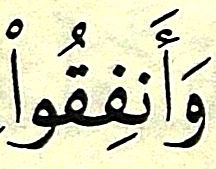 وَأَنفِقُواْ